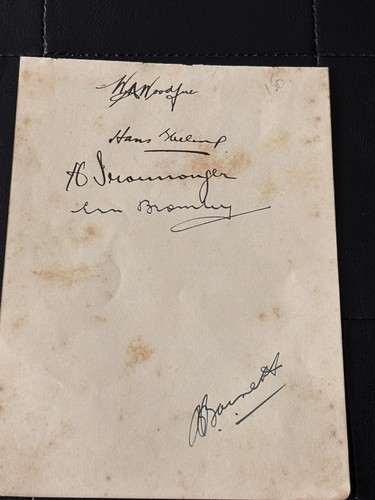 W A Woodfull
Hans Ebeling
H Ironmonger
Ern Bromley
B Barnett